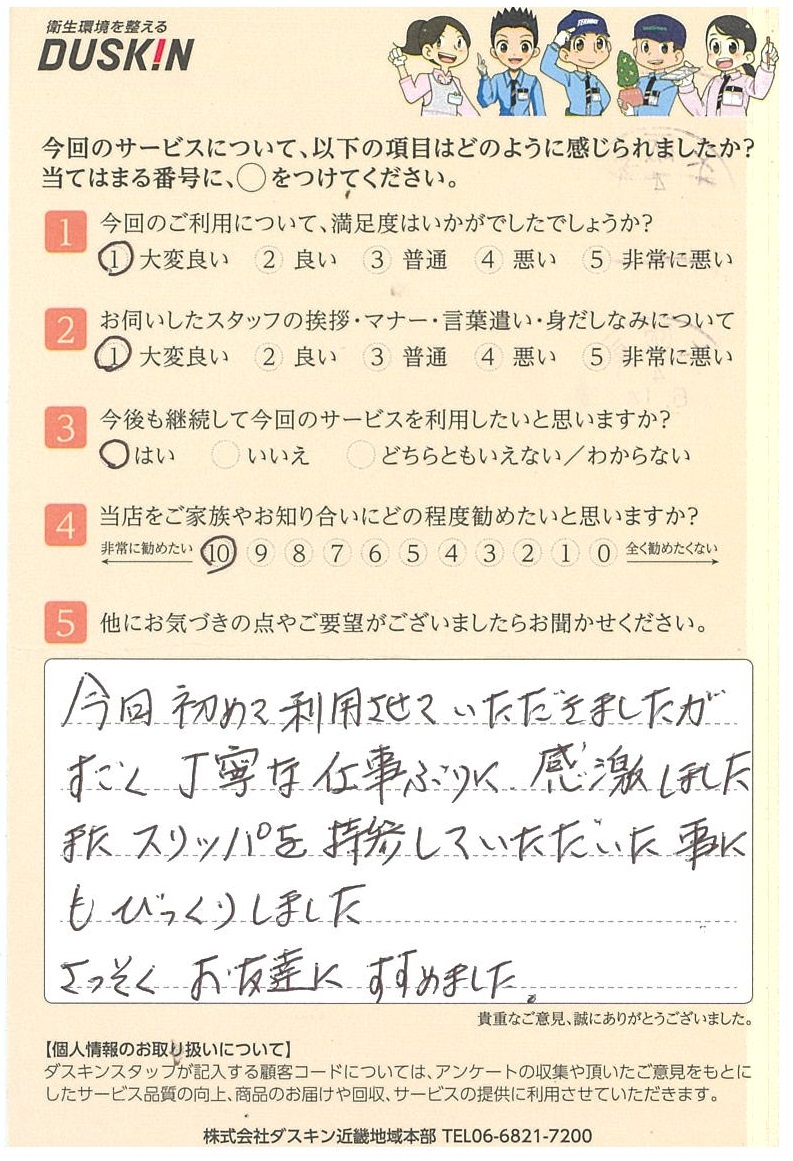 衛生環境を整える
DUSKIN
今回のサービスについて、以下の項目はどのように感じられましたか?
当てはまる番号に、◯をつけてください。
1 今回のご利用について、満足度はいかがでしたでしょうか?
1 大変良い 2 良い 3 普通 4 悪い 5 非常に悪い
2 お伺いしたスタッフの挨拶・マナー・言葉遣い・身だしなみについて
1 大変良い 2 良い 3 普通 4 悪い 5 非常に悪い
3 今後も継続して今回のサービスを利用したいと思いますか?
はい いいえ どちらともいえない/わからない
4 当店をご家族やお知り合いにどの程度勧めたいと思いますか?
非常に勧めたい 10 9 8 7 6 5 4 3 2 1 0 全く勧めたくない
5 他にお気づきの点やご要望がございましたらお聞かせください。
今回初めて利用させていただきましたが
すごく丁寧な仕事ぶりに感激しました
またスリッパを持参していただいた事に
もびっくりしました
さっそくお友達にすすめました。
貴重なご意見、誠にありがとうございました。
【個人情報のお取り扱いについて】
ダスキンスタッフが記入する顧客コードについては、アンケートの収集や頂いたご意見をもとに
したサービス品質の向上、商品のお届けや回収、サービスの提供に利用させていただきます。
株式会社ダスキン近畿地域本部 TEL06-6821-7200